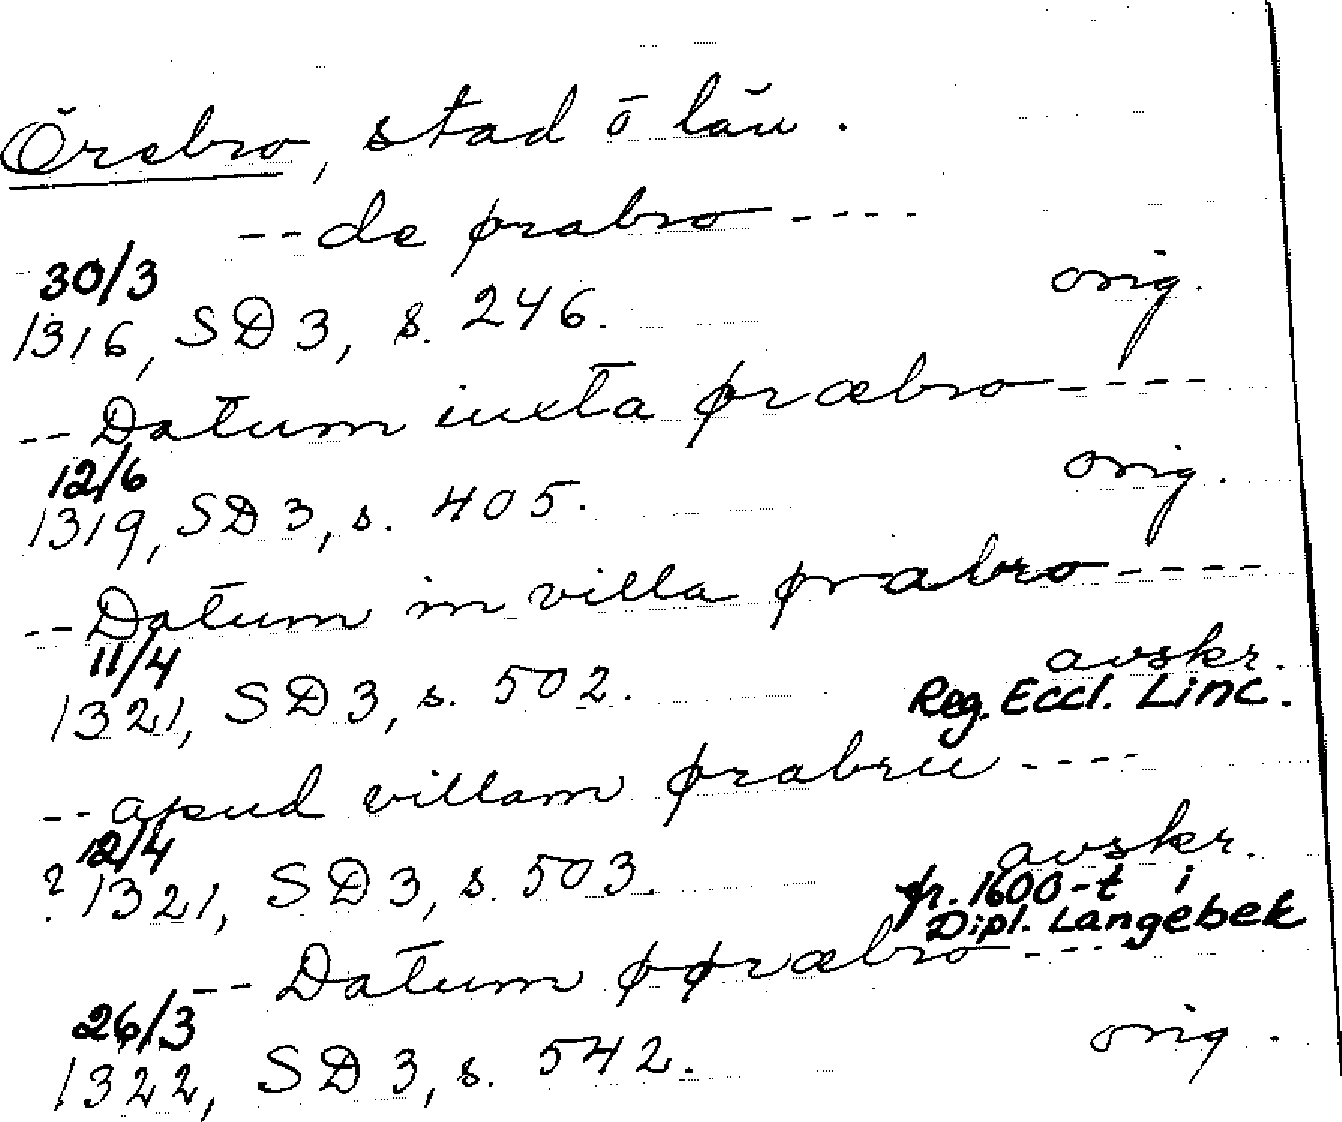 Örebro, stad ō län.
-- de ørabro ----
30/3
1316, SD 3, s. 246. orig.
-- Datum iuxta øræbro ----
12/6
1319, SD 3, s. 405. orig.
-- Datum in villa ørabro ----
11/4
1321, SD 3, s. 502. avskr.
Reg. Eccl. Linc.
-- apud villam ørabru ----
12/4
? 1321, SD 3, s. 503. avskr.
fr. 1600-t i
Dipl. Langebek
-- Datum øøræbro ----
26/3
1322, SD 3, s. 542. orig.